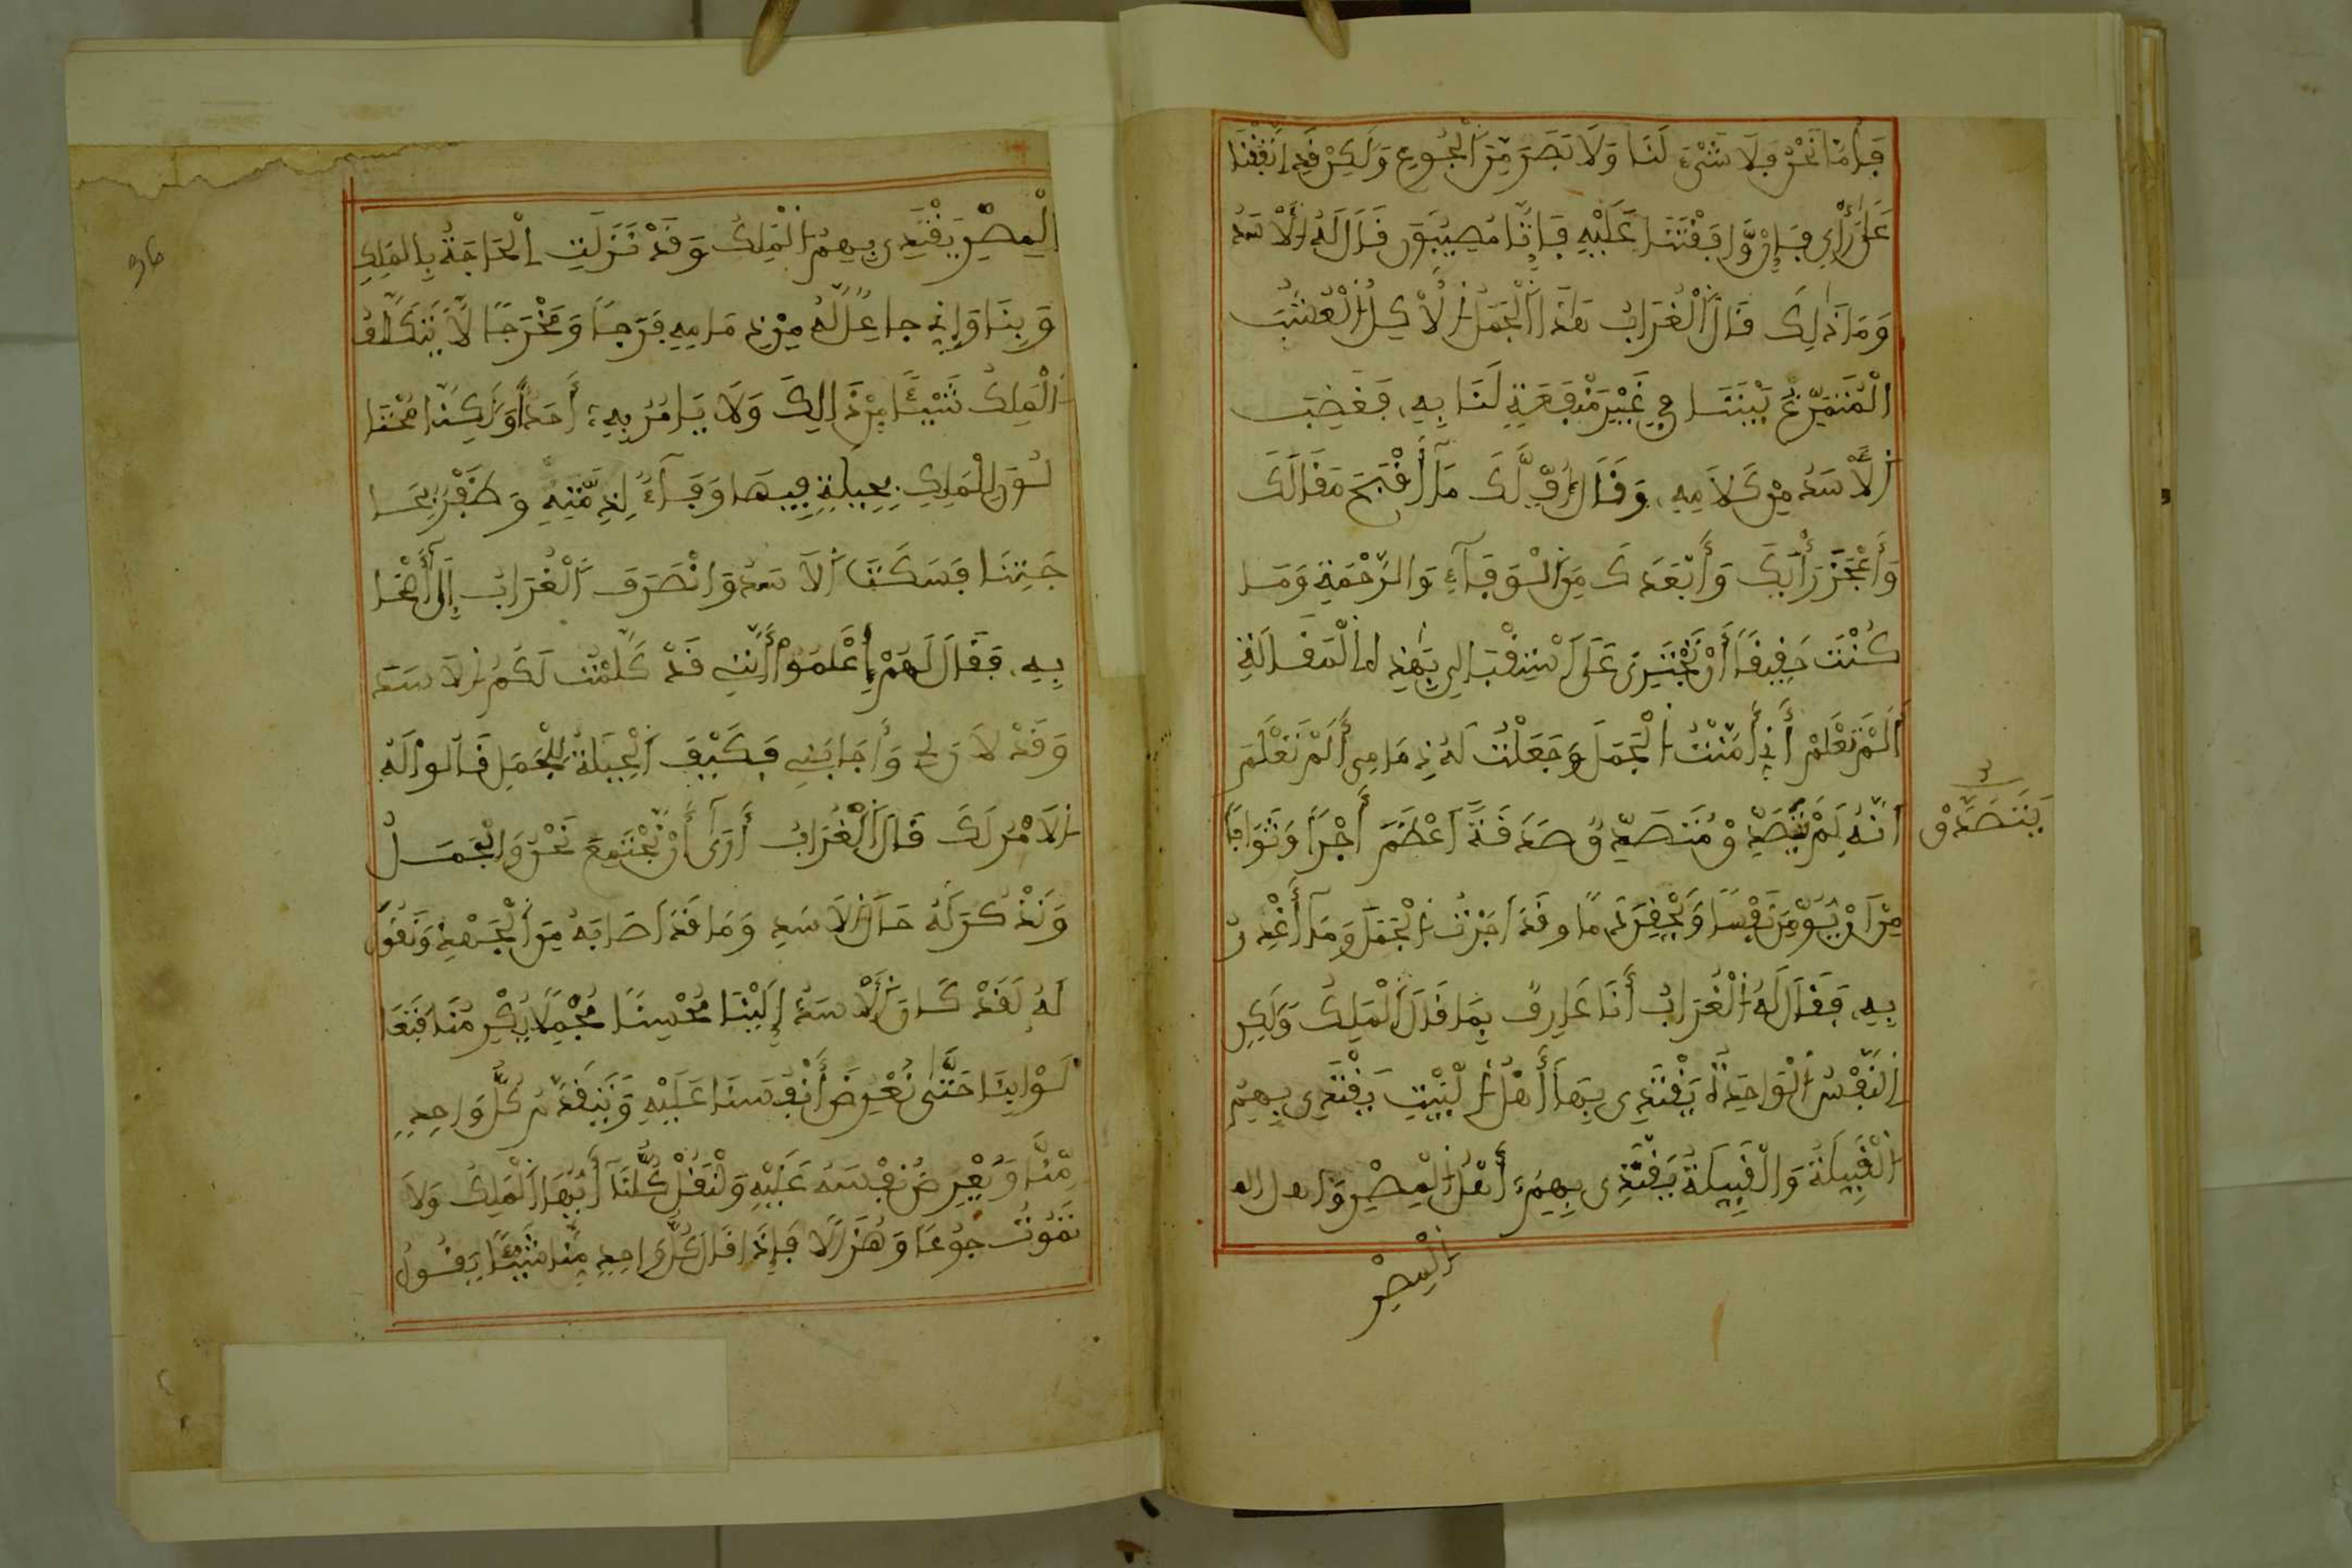 فَأَمَّا نَحْنُ فَلَا شَيْءَ لَنَا وَلَا بَصَرَ مِنَ الْجُوعِ وَلَكِنْ قَدِ اتَّفَقْنَا
عَلَى رَأْيٍ فَإِنْ وَافَقْتَنَا عَلَيْهِ فَإِنَّا مُصِيبُونَ قَالَ لَهُ الْأَسَدُ
وَمَا ذَلِكَ قَالَ الْغُرَابُ هَذَا الْجَمَلُ الْآكِلُ الْعُشْبَ
الْمُتَمَرِّغُ بَيْنَنَا فِي غَيْرِ مَنْفَعَةٍ لَنَا بِهِ، فَغَضِبَ
الْأَسَدُ مِنْ كَلَامِهِ، وَقَالَ أُفٍّ لَّكَ مَا أَقْبَحَ مَقَالَكَ
وَأَعْجَزَ رَأْيَكَ وَأَبْعَدَكَ مِنَ الْوَفَاءِ وَالرَّحْمَةِ وَمَا
كُنْتَ حَقِيقًا أَنْ تَجْتَرِئَ عَلَى اسْتِقْبَالِي بِهَذِهِ الْمَقَالَةِ
أَلَمْ تَعْلَمْ أَنِّي أَمَّنْتُ الْجَمَلَ وَجَعَلْتُ لَهُ ذِمَامِي أَلَمْ تَعْلَمَ
أَنَّهُ لَمْ يَتَصَدَّقْ مُتَصَدِّقٌ صَدَقَةً أَعْظَمَ أَجْرًا وَثَوَابًا
يَتَصَدَّقْ
مِنْ أَنْ يُؤَمِّنَ نَفْسًا وَيَحْقِنَ دَمًا وَقَدْ أَجَرْتُ الْجَمَلَ وَمَا أَغْدِرُ
بِهِ، فَقَالَ لَهُ الْغُرَابُ أَنَا عَارِفٌ بِمَا قَالَ الْمَلِكُ وَلَكِنِ
النَّفْسُ الْوَاحِدَةُ يَفْتَدِي بِهَا أَهْلُ الْبَيْتِ يَفْتَدِي بِهِمُ
الْقَبِيلَةُ وَالْقَبِيلَةُ يَفْتَدِي بِهِمُ، أَهْلُ الْمِصْرِ وَأَهْلُ
الْمِصْرِ
36
الْمِصْرِ يَفْتَدِي بِهِمُ الْمَلِكُ وَقَدْ نَزَلَتِ الْحَاجَةُ بِالْمَلِكِ
وَبِنَا وَإِنِّي جَاعِلٌ لَّهُ مِنْ ذِمَامِهِ فَرَجًا وَمَخْرَجًا لَّا يَتَكَلَّفُ
الْمَلِكُ شَيْئًا مِنْ ذَالِكَ وَلَا يَامُرُ بِهِ، أَحَدًا وَلَكِنَّا
الْمَلِكِ بِحِيلَةٍ فِيهَا وَفَاءٌ لِذِمَّتِهِ وَظَفْرٌ بِحَا
جَتِنَا فَسَكَتَ الْأَسَدُ وَانْصَرَفَ الْغُرَابُ إِلَى أَصْحَا
بِهِ، فَقَالَ لَهُمْ اِعْلَمُوا أَنَّنِي قَدْ كَلَّمْتُ لَكُمُ الْأَسَدَ
وَقَدْ لَانَ لِي وَأَجَابَنِي فَكَيْفَ الْحِيلَةُ لِلْجَمَلِ قَالُوا لَهُ
الْأَمْرُ لَكَ قَالَ الْغُرَابُ أَرَى أَنْ نَّجْتَمِعَ نَحْنُ وَالْجَمَلُ
وَنَذْكُرَ لَهُ حَالَ الْأَسَدِ وَمَا قَدْ أَصَابَهُ مِنَ الْجَهْدِ وَنَقُولَ
لَهُ لَقَدْ كَانَ الْأَسَدُ إِلَيْنَا مُحْسِنًا مُجْمِلًا
حَتَّى نُعْرِضَ أَنْفُسَنَا عَلَيْهِ وَيَتَقَدَّمَ كُلُّ وَاحِدٍ
مِّنَّا وَيُعْرِضُ نَفْسَهُ عَلَيْهِ وَلْنَقُلْ كُلُّنَا أَيُّهَا الْمَلِكُ وَلَا
تَمُوتُ جُوعًا وَهُزَالًا فَإِذَا قَالَ كُلُّ وَاحِدٍ مِنَّا شَيْئًا يَقُولُ